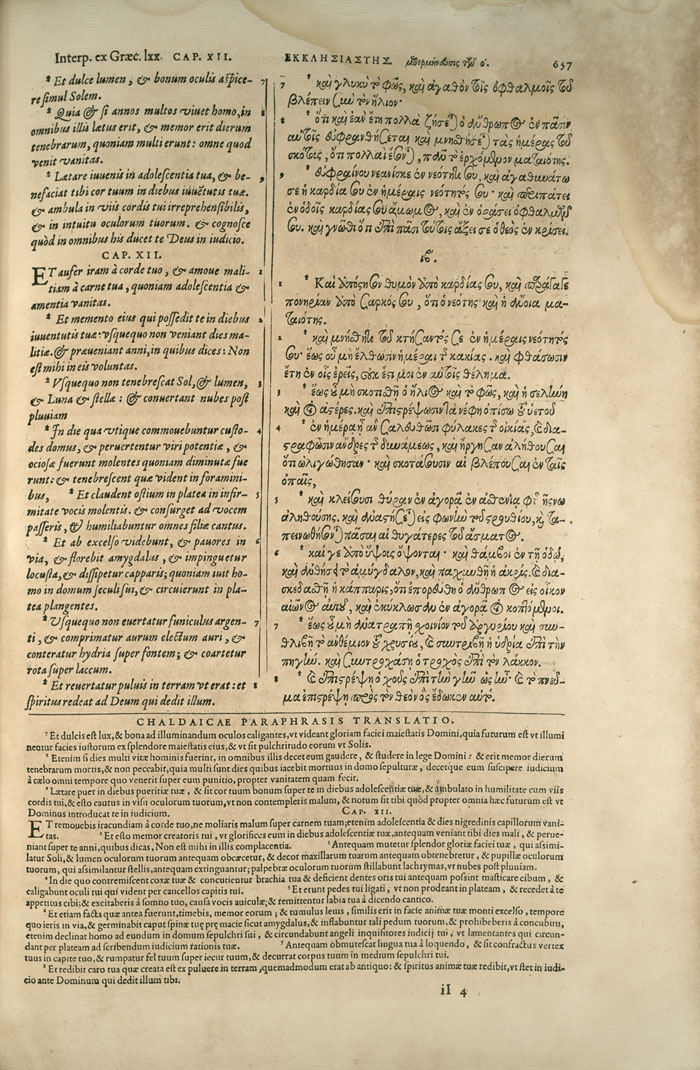 Interp. ex Græc. lxx CAP. XII.
ΕΚΚΛΗΣΙΑΣΤΗΣ.
657
⁷ Et dulce lumen, & bonum oculis aspice-
re simul Solem.
⁸ Quia & si annos multos viuet homo, in
omnibus illis lætus erit, & memor erit dierum
tenebrarum, quoniam multi erunt: omne quod
venit vanitas.
⁹ Lætare iuuenis in adolescentia tua, & be-
nefaciat tibi cor tuum in diebus iuuētutis tuæ.
& ambula in viis cordis tui irreprehensibilis,
& in intuitu oculorum tuorum. & cognosce
quòd in omnibus his ducet te Deus in iudicio.
CAP. XII.
ET aufer iram à corde tuo, & amoue mali-
tiam à carne tua, quoniam adolescentia &
amentia vanitas.
² Et memento eius qui possedit te in diebus
iuuentutis tuæ: vsquequo non veniant dies ma-
litiæ. & præueniant anni, in quibus dices: Non
est mihi in eis voluntas.
³ Vsquequo non tenebrescat Sol, & lumen,
& Luna & stellæ: & conuertant nubes post
pluuiam
⁴ In die qua vtique commouebuntur custo-
des domus, & peruertentur viri potentiæ, &
ociosæ fuerunt molentes quoniam diminutæ fue
runt: & tenebrescent quæ vident in forami-
bus, ⁵ Et claudent ostium in platea in infir-
mitate vocis molentis. & consurget ad vocem
passeris, & humiliabuntur omnes filiæ cantus.
⁶ Et ab excelso videbunt, & pauores in
via, & florebit amygdalus, & impinguetur
locusta, & dissipetur capparis; quoniam iuit ho-
mo in domum seculi sui, & circuierunt in pla-
tea plangentes.
⁷ Vsquequo non euertatur funiculus argen-
ti, & comprimatur aurum electum auri, &
conteratur hydria super fontem; & coartetur
rota super laccum.
⁸ Et reuertatur puluis in terram vt erat: et
spiritus redeat ad Deum qui dedit illum.
⁷ καὶ γλυκὺ τὸ φῶς, καὶ ἀγαθὸν τοῖς ὀφθαλμοῖς τοῦ
βλέπειν σὺν τὸν ἥλιον·
⁸ ὅτι καὶ ἐὰν ἔτη πολλὰ ζήσεται ὁ ἄνθρωπος ἐν πᾶσιν
αὐτοῖς εὐφρανθήσεται καὶ μνησθήσεται τὰς ἡμέρας τοῦ
σκότους, ὅτι πολλαὶ ἔσονται, πᾶν τὸ ἐρχόμενον ματαιότης.
⁹ εὐφραίνου νεανίσκε ἐν νεότητί σου, καὶ ἀγαθυνάτω
σε ἡ καρδία σου ἐν ἡμέραις νεότητός σου· καὶ περιπάτει
ἐν ὁδοῖς καρδίας σου ἄμωμος, καὶ ἐν ὁράσει ὀφθαλμῶν
σου. καὶ γνῶθι ὅτι ἐπὶ πᾶσι τούτοις ἄξει σε ὁ θεὸς ἐν κρίσει.
ιβ.
¹ Καὶ ἀπόστησον θυμὸν ἀπὸ καρδίας σου, καὶ παράγαγε
πονηρίαν ἀπὸ σαρκός σου, ὅτι ἡ νεότης καὶ ἡ ἄνοια μα-
ταιότης.
² καὶ μνήσθητι τοῦ κτήσαντός σε ἐν ἡμέραις νεότητός
σου· ἕως οὗ μὴ ἔλθωσιν ἡμέραι τῆς κακίας. καὶ φθάσωσιν
ἔτη ἐν οἷς ἐρεῖς, οὐκ ἔστι μοι ἐν αὐτοῖς θέλημα.
³ ἕως οὗ μὴ σκοτισθῇ ὁ ἥλιος καὶ τὸ φῶς, καὶ ἡ σελήνη
καὶ οἱ ἀστέρες. καὶ ἐπιστρέψωσιν τὰ νέφη ὀπίσω τοῦ ὑετοῦ
⁴ ἐν ἡμέρᾳ ᾗ ἂν σαλευθῶσι φύλακες τῆς οἰκίας, καὶ δια-
στραφῶσιν ἄνδρες τῆς δυνάμεως, καὶ ἤργησαν αἱ ἀλήθουσαι
ὅτι ὠλιγώθησαν· καὶ σκοτάσουσιν αἱ βλέπουσαι ἐν ταῖς
ὀπαῖς,
⁵ καὶ κλείσουσι θύραν ἐν ἀγορᾷ ἐν ἀσθενείᾳ φωνῆς τῆς
ἀληθούσης. καὶ ἀναστήσεται εἰς φωνὴν τοῦ στρουθίου, καὶ τα-
πεινωθήσονται πᾶσαι αἱ θυγατέρες τοῦ ᾄσματος.
⁶ καί γε ἀπὸ ὕψους ὄψονται· καὶ θάμβοι ἐν τῇ ὁδῷ,
καὶ ἀνθήσῃ τὸ ἀμύγδαλον, καὶ παχυνθῇ ἡ ἀκρίς. καὶ δια-
σκεδασθῇ ἡ κάππαρις, ὅτι ἐπορεύθη ὁ ἄνθρωπος εἰς οἶκον
αἰῶνος αὐτοῦ, καὶ ἐκύκλωσαν ἐν ἀγορᾷ οἱ κοπτόμενοι.
⁷ ἕως οὗ μὴ ἀνατραπῇ σχοινίον τοῦ ἀργυρίου καὶ συν-
θλιβῇ τὸ ἀνθέμιον τοῦ χρυσίου, καὶ συντριβῇ ἡ ὑδρία ἐπὶ τὴν
πηγὴν. καὶ συντροχάσῃ ὁ τροχὸς ἐπὶ τὸν λάκκον.
⁸ καὶ ἐπιστρέψῃ ὁ χοῦς ἐπὶ τὴν γῆν ὡς ἦν· καὶ τὸ πνεῦ-
μα ἐπιστρέψῃ πρὸς τὸν θεὸν ὃς ἔδωκεν αὐτό.
CHALDAICAE PARAPHRASIS TRANSLATIO.
⁷ Et dulcis est lux, & bona ad illuminandum oculos caligantes, vt videant gloriam faciei maiestatis Domini, quia futurum est vt illumi
nentur facies iustorum ex splendore maiestatis eius, & vt sit pulchritudo eorum vt Solis.
⁸ Etenim si dies multi vitæ hominis fuerint, in omnibus illis decet eum gaudere, & studere in lege Domini: & erit memor dierum
tenebrarum mortis, & non peccabit, quia multi sunt dies quibus iacebit mortuus in domo sepulturæ, decetque eum suscipere iudicium
à cælo omni tempore quo venerit super eum punitio, propter vanitatem quam fecit.
⁹ Lætare puer in diebus pueritiæ tuæ, & sit cor tuum bonum super te in diebus adolescentiæ tuæ, & ambulato in humilitate cum viis
cordis tui, & esto cautus in visu oculorum tuorum, vt non contempleris malum, & notum sit tibi quòd propter omnia hæc futurum est vt
Dominus introducat te in iudicium. CAP. XII.
ET remouebis iracundiam à corde tuo, ne moliaris malum super carnem tuam; etenim adolescentia & dies nigredinis capillorum vani-
tas. ² Et esto memor creatoris tui, vt glorifices eum in diebus adolescentiæ tuæ, antequam veniant tibi dies mali, & perue-
niant super te anni, quibus dicas, Non est mihi in illis complacentia. ³ Antequam mutetur splendor gloriæ faciei tuæ, qui assimi-
latur Soli, & lumen oculorum tuorum antequam obcæcetur, & decor maxillarum tuarum antequam obtenebretur, & pupillæ oculorum
tuorum, qui assimilantur stellis, antequam extinguantur; palpebræ oculorum tuorum stillabunt lachrymas, vt nubes post pluuiam.
⁴ In die quo contremiscent coxæ tuæ & concutientur brachia tua & deficient dentes oris tui antequam possint masticare cibum, &
caligabunt oculi tui qui vident per cancellos capitis tui. ⁵ Et erunt pedes tui ligati, vt non prodeant in plateam, & recedet à te
appetitus cibi; & excitaberis à somno tuo, causa vocis auiculæ; & remittentur labia tua à dicendo cantico.
⁶ Et etiam facta quæ antea fuerunt, timebis, memor eorum; & tumulus leuis, similis erit in facie animæ tuæ monti excelso, tempore
quo ieris in via, & germinabit caput spinæ tuę pręmacie sicut amygdalus, & inflabuntur tali pedum tuorum, & prohibeberis à concubitu,
etenim declinat homo ad eundum in domum sepulchri sui, & circundabunt angeli inquisitores iudicij tui, vt lamentantes qui circun-
dant per plateam ad scribendum iudicium rationis tuæ. ⁷ Antequam obmutescat lingua tua à loquendo, & sit confractus vertex
tuus in capite tuo, & rumpatur fel tuum super iecur tuum, & decurrat corpus tuum in medium sepulchri tui.
⁸ Et redibit caro tua quæ creata est ex puluere in terram, quemadmodum erat ab antiquo: & spiritus animæ tuæ redibit, vt stet in iudi-
cio ante Dominum qui dedit illum tibi.
iI 4